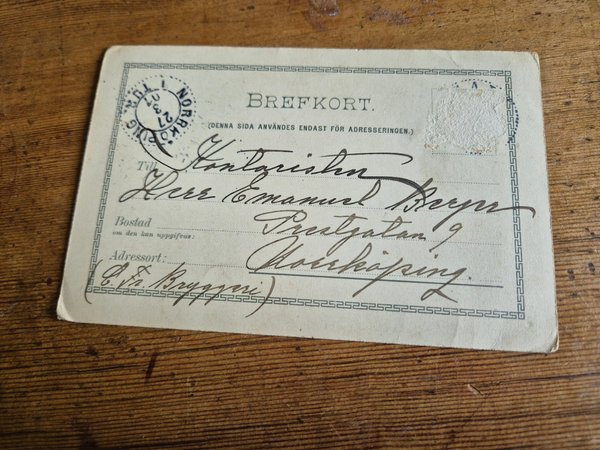 NORRKÖPING 1 TUR
27
BREFKORT.
(DENNA SIDA ANVÄNDES ENDAST FÖR ADRESSERINGEN.)
Till Kontoristen
Herr Emanuel Berger
Bostad Prestgatan 9
om den kan uppgifvas:
Adressort: Norrköping.
(C. Fr. Bryggeri)